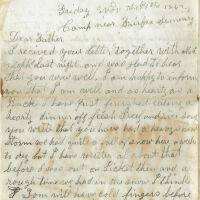 Friday Feb the 1862
Camp near Fairfax Seminary
Dear Father
I received your letter, together with
last night and was glad to hear
that you were well. I am happy to inform
you that I am well and as hearty as a
Buck. I have just finished eating a
hearty dinner off fresh Beef and
you write that you have had a heavy
Storm we had quite a fall of snow here
to day but I have written about that
before I was out on Picket then and a
rough time we had in the snow I think
Tom will have cold fingers before